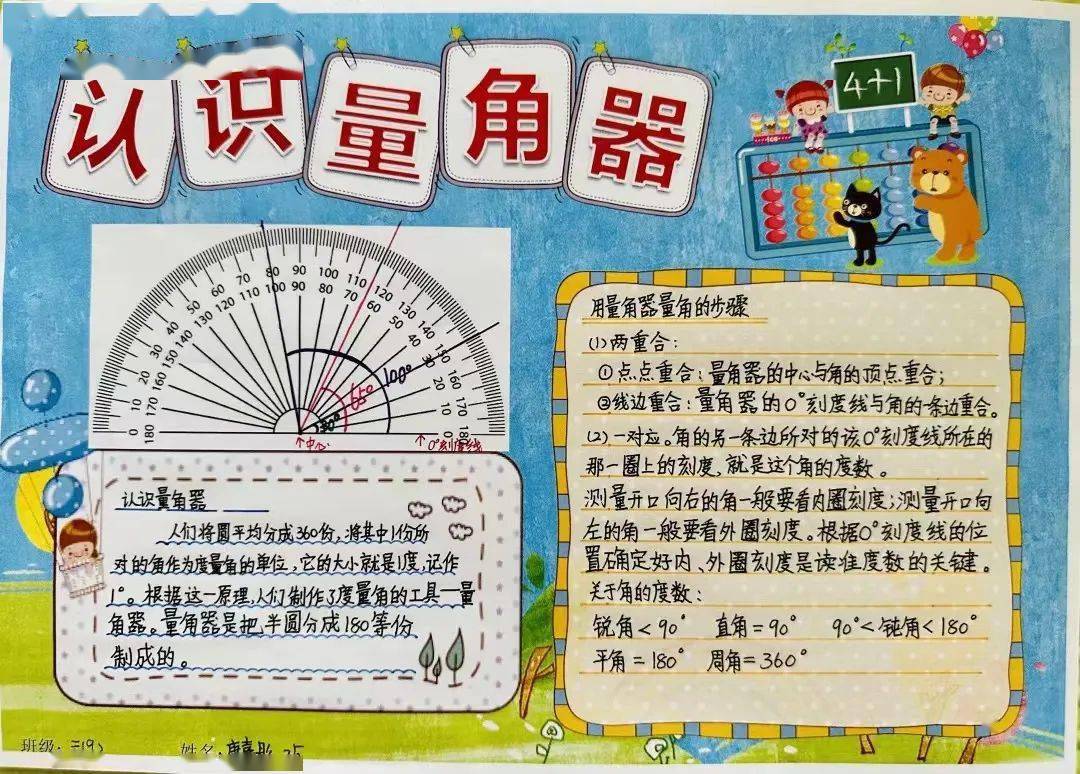 认识量角器
4+1
80 90 100 110 120 130
70
60
50
40
30
20
10
0
100 90 80 70 60 50 40 30
110
120
130
140
150
160
170
180
100°
65°
130°
↑中心
↑0°刻度线
认识量角器
人们将圆平均分成360份,将其中1份所
对的角作为度量角的单位,它的大小就是1度,记作
1°。根据这一原理,人们制作了度量角的工具一量
角器。量角器是把半圆分成180等份
制成的。
用量角器量角的步骤
(1)两重合:
①点点重合:量角器的中心与角的顶点重合;
②线边重合:量角器的0°刻度线与角的一条边重合。
(2)一对应。角的另一条边所对的该0°刻度线所在的
那一圈上的刻度,就是这个角的度数。
测量开口向右的角一般要看内圈刻度;测量开口向
左的角一般要看外圈刻度。根据0°刻度线的位
置确定好内、外圈刻度是读准度数的关键。
关于角的度数:
锐角<90° 直角=90° 90°<钝角<180°
平角=180° 周角=360°
班级: 姓名: